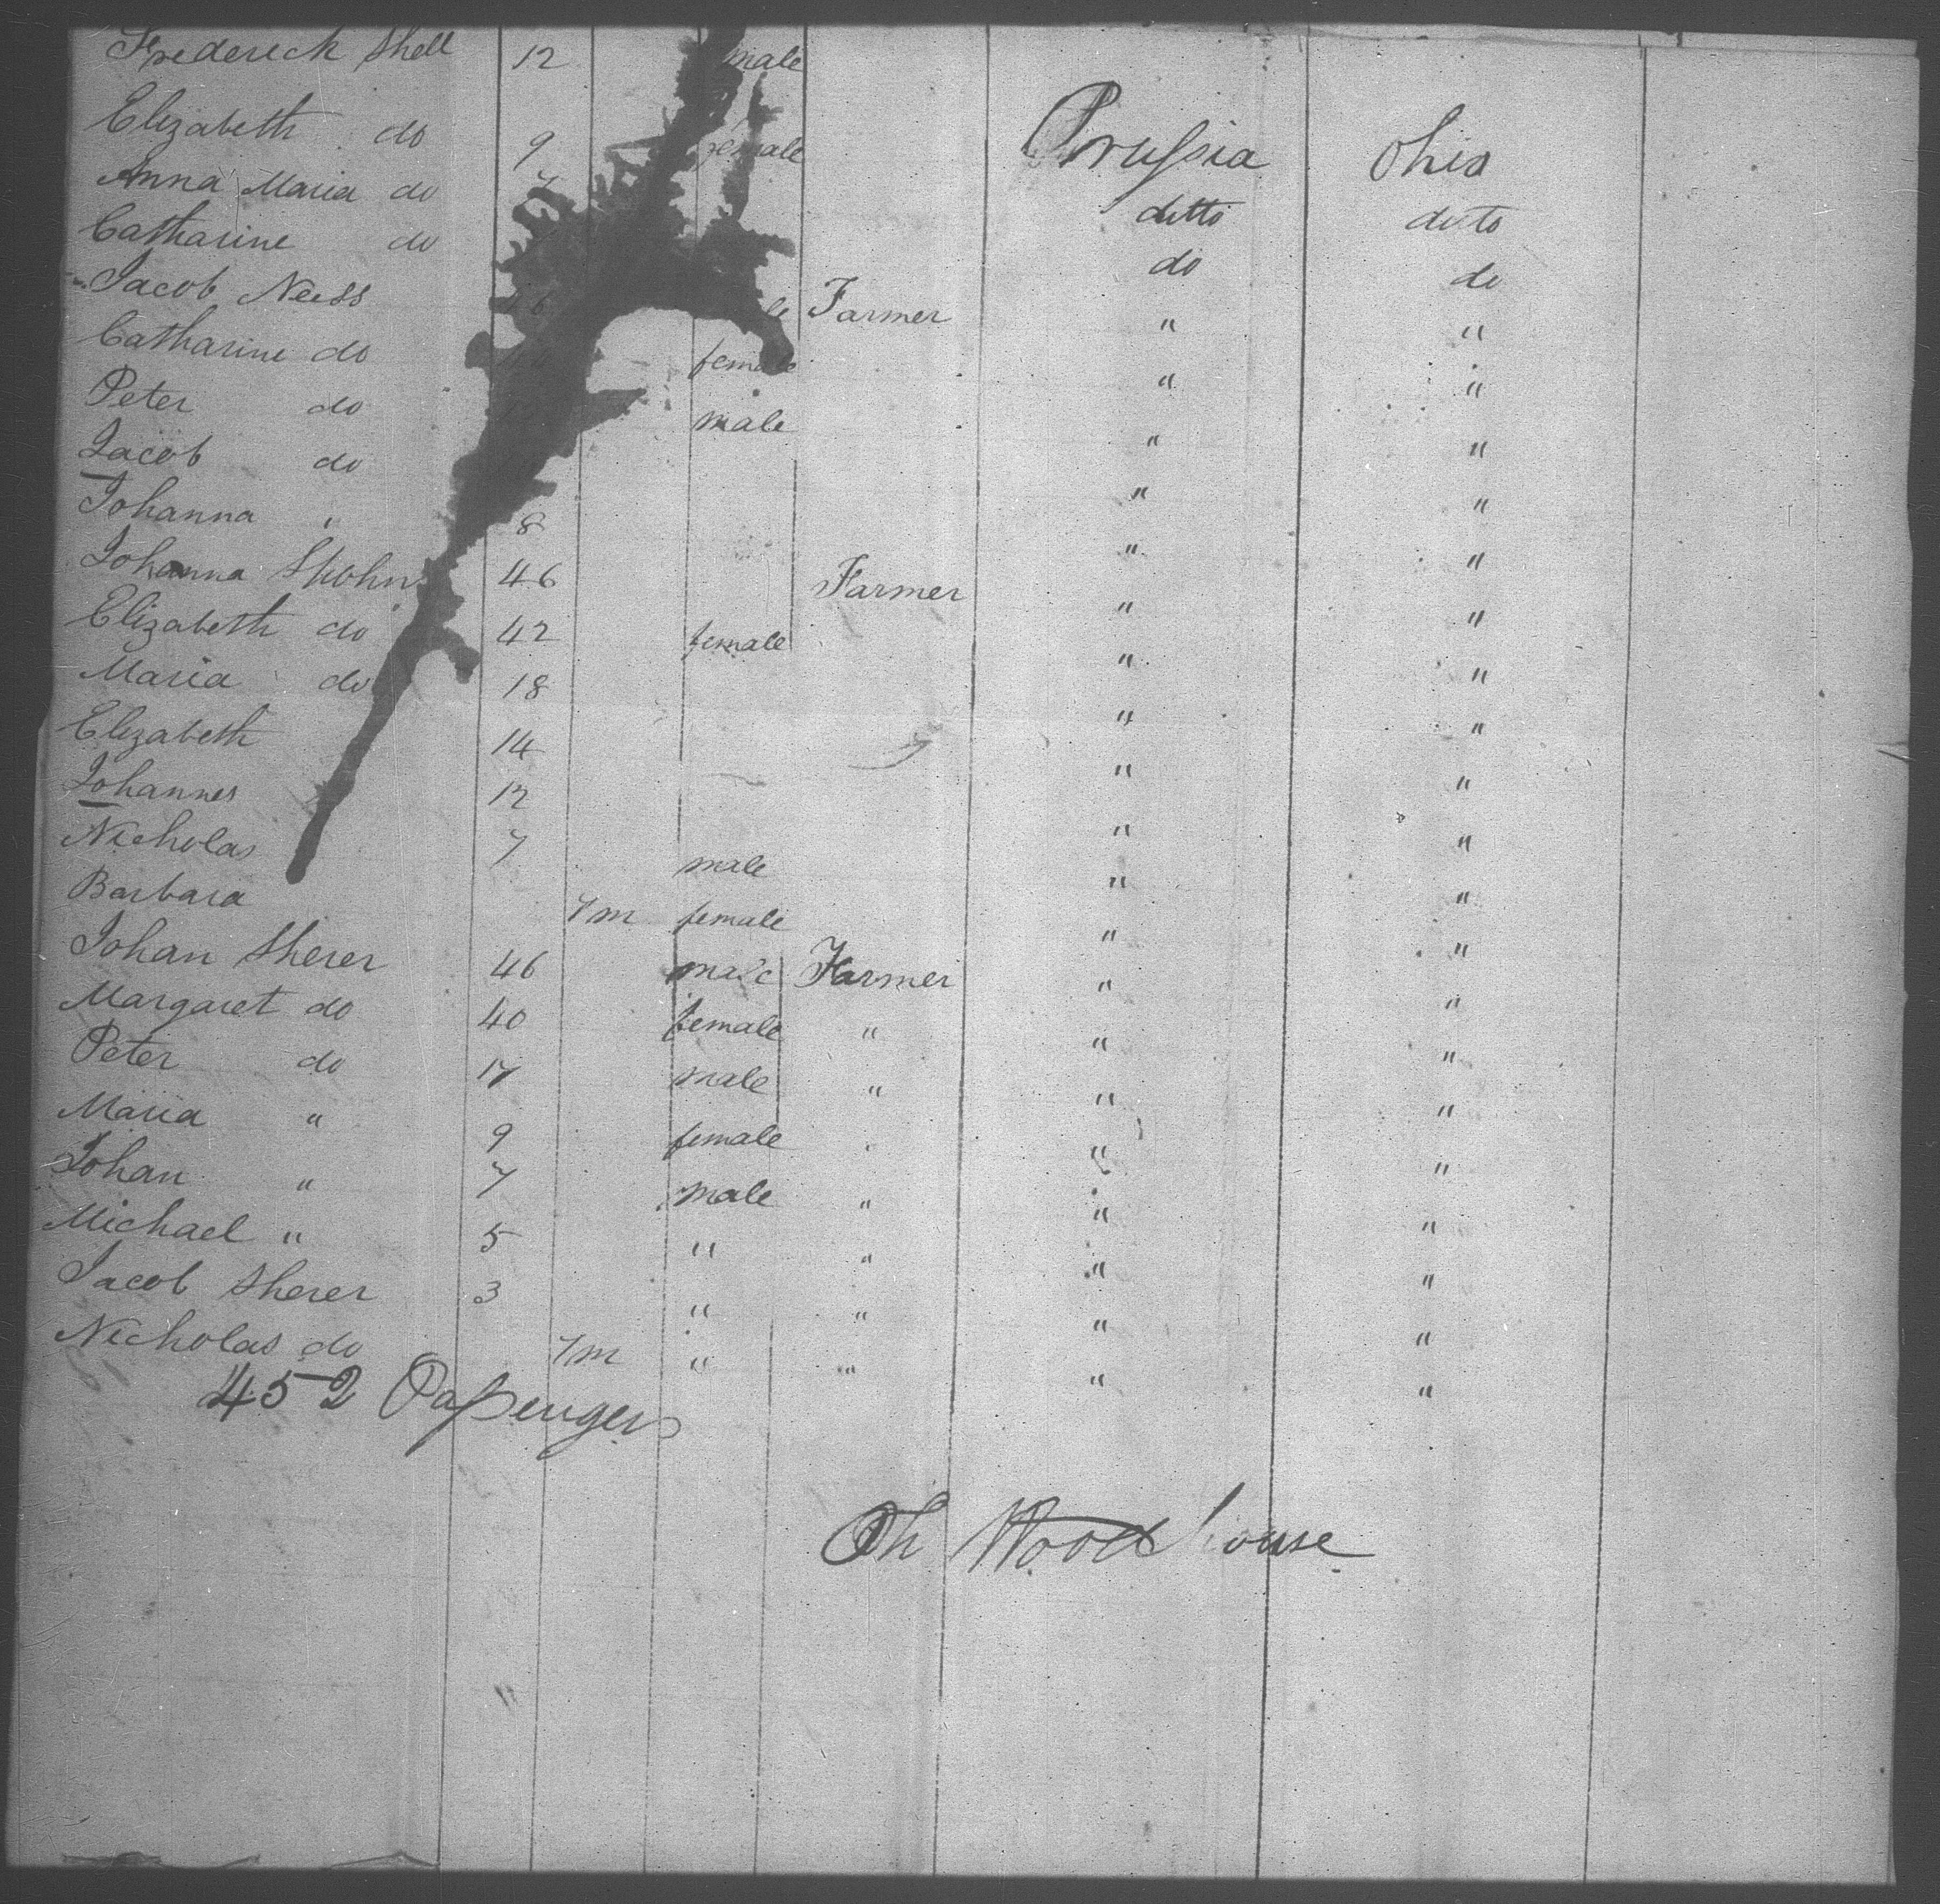 Frederick Shell 12 male
Elizabeth do 9 female Prussia Ohio
Anna Maria do 7 ditto ditto
Catharine do do do
Jacob Neiss 46 Farmer " "
Catharine do female " "
Peter do male " "
Jacob do " "
Johanna " 8 " "
Johanna 46 Farmer " "
Elizabeth do 42 female " "
Maria do 18 " "
Elizabeth 14 " "
Johannes 12 " "
Nicholas 7 male " "
Barbara 7m female " "
Johan Sherer 46 male Farmer " "
Margaret do 40 female " " "
Peter do 17 male " " "
Maria " 9 female " " "
Johan " 7 male " " "
Michael " 5 " " " "
Jacob Sherer 3 " " " "
Nicholas do 7m " " " "
452 Passengers
Woodhouse